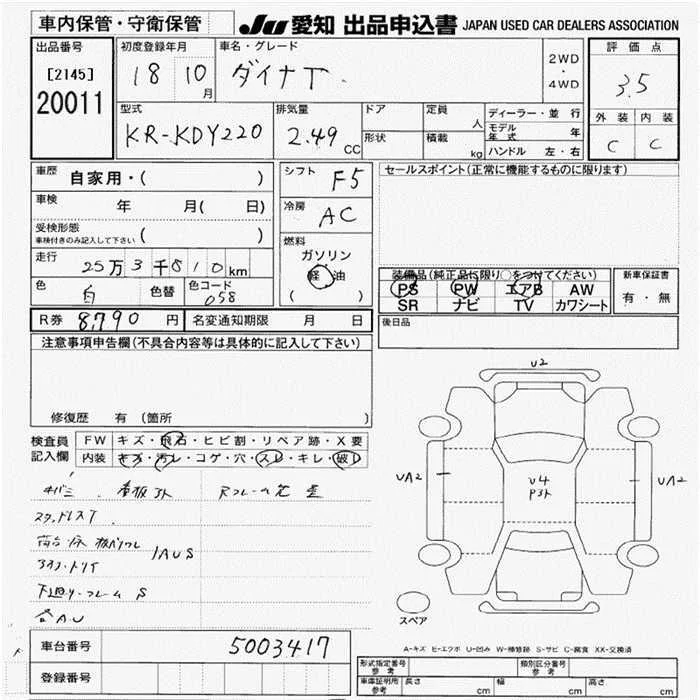 車内保管・守衛保管
JU 愛知 出品申込書 JAPAN USED CAR DEALERS ASSOCIATION
出品番号
[2145]
20011
初度登録年月
18 10 月
車名・グレード
ダイナT
2WD
・
4WD
評価点
3.5
外装 内装
C C
型式
KR-KDY220
排気量
2.49 CC
ドア
形状
定員 人
積載 kg
ディーラー・並行
モデル年式 年
ハンドル 左・右
車歴
自家用・( )
車検 年 月( 日)
受検形態
車検付きのみ記入して下さい ( )
走行
25万3千810km
色 白 色替
色コード
058
シフト F5
冷房 AC
燃料
ガソリン
軽油
( )
セールスポイント(正常に機能するものに限ります)
装備品(純正品に限り○をつけてください)
PS PW エアB AW
SR ナビ TV カワシート
新車保証書
有・無
R券 8,790 円
名変通知期限 月 日
後日品
注意事項申告欄(不具合内容等は具体的に記入して下さい)
修復歴 有(箇所 )
検査員
記入欄
FW キズ・飛石・ヒビ割・リペア跡・X要
内装 キズ・汚レ・コゲ・穴・スレ・キレ・破レ
キバミ 看板アト
スタッドレスT
1AUS
下廻り・フレームS
各AU
U2
UA2
U4
P3ト
UA2
スペア
A-キズ E-エクボ U-凹み W-補修跡 S-サビ C-腐食 XX-交換済
車台番号 5003417
登録番号
形式指定番号
参考
類別区分番号
参考
車庫証明用
参考
長さ cm 幅 cm 高さ cm